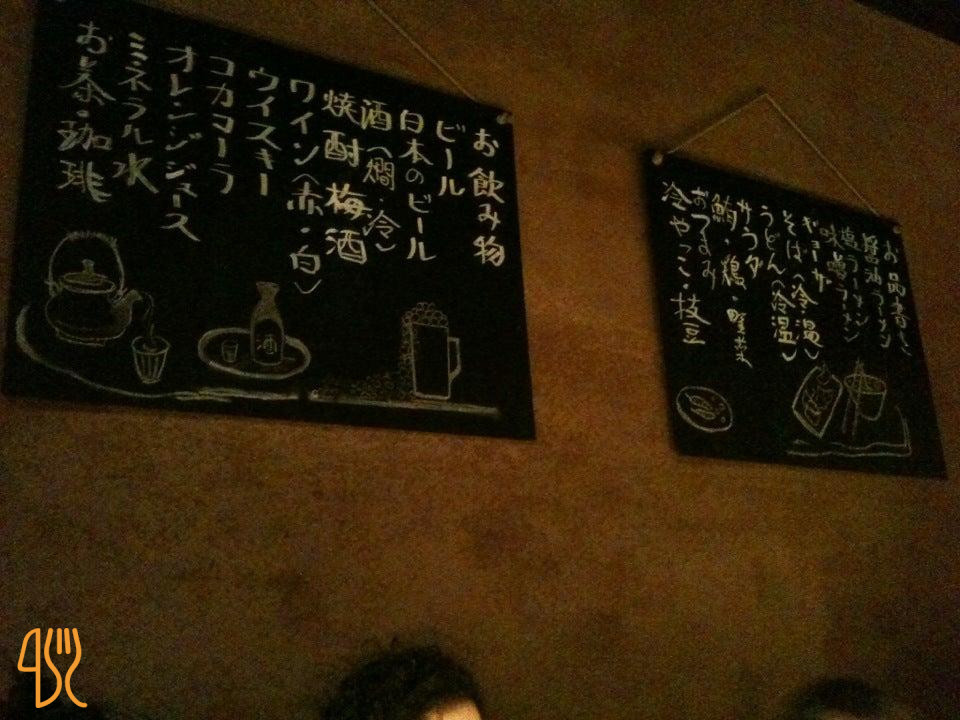 お飲み物
ビール
日本のビール
酒(燗・冷)
焼酎 梅酒
ワイン(赤・白)
ウイスキー
コカコーラ
オレンジジュース
ミネラル水
お茶・珈琲
酒
お品書き
醤油ラーメン
塩ラーメン
味噌ラーメン
ギョーザ
そば(冷温)
うどん(冷温)
サラダ
鮪・鶏・蟹
おつまみ
冷やっこ・枝豆